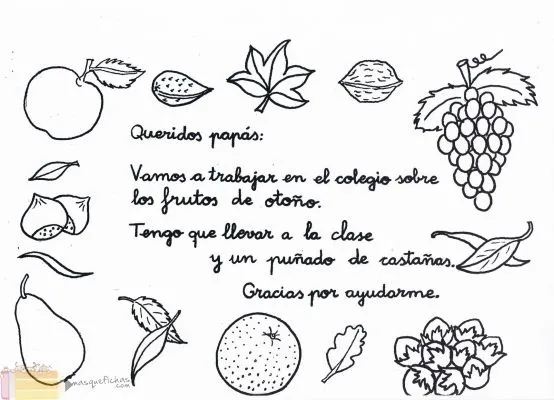 Queridos papás:
Vamos a trabajar en el colegio sobre
los frutos de otoño.
Tengo que llevar a la clase
y un puñado de castañas.
Gracias por ayudarme.
masquefichas.com